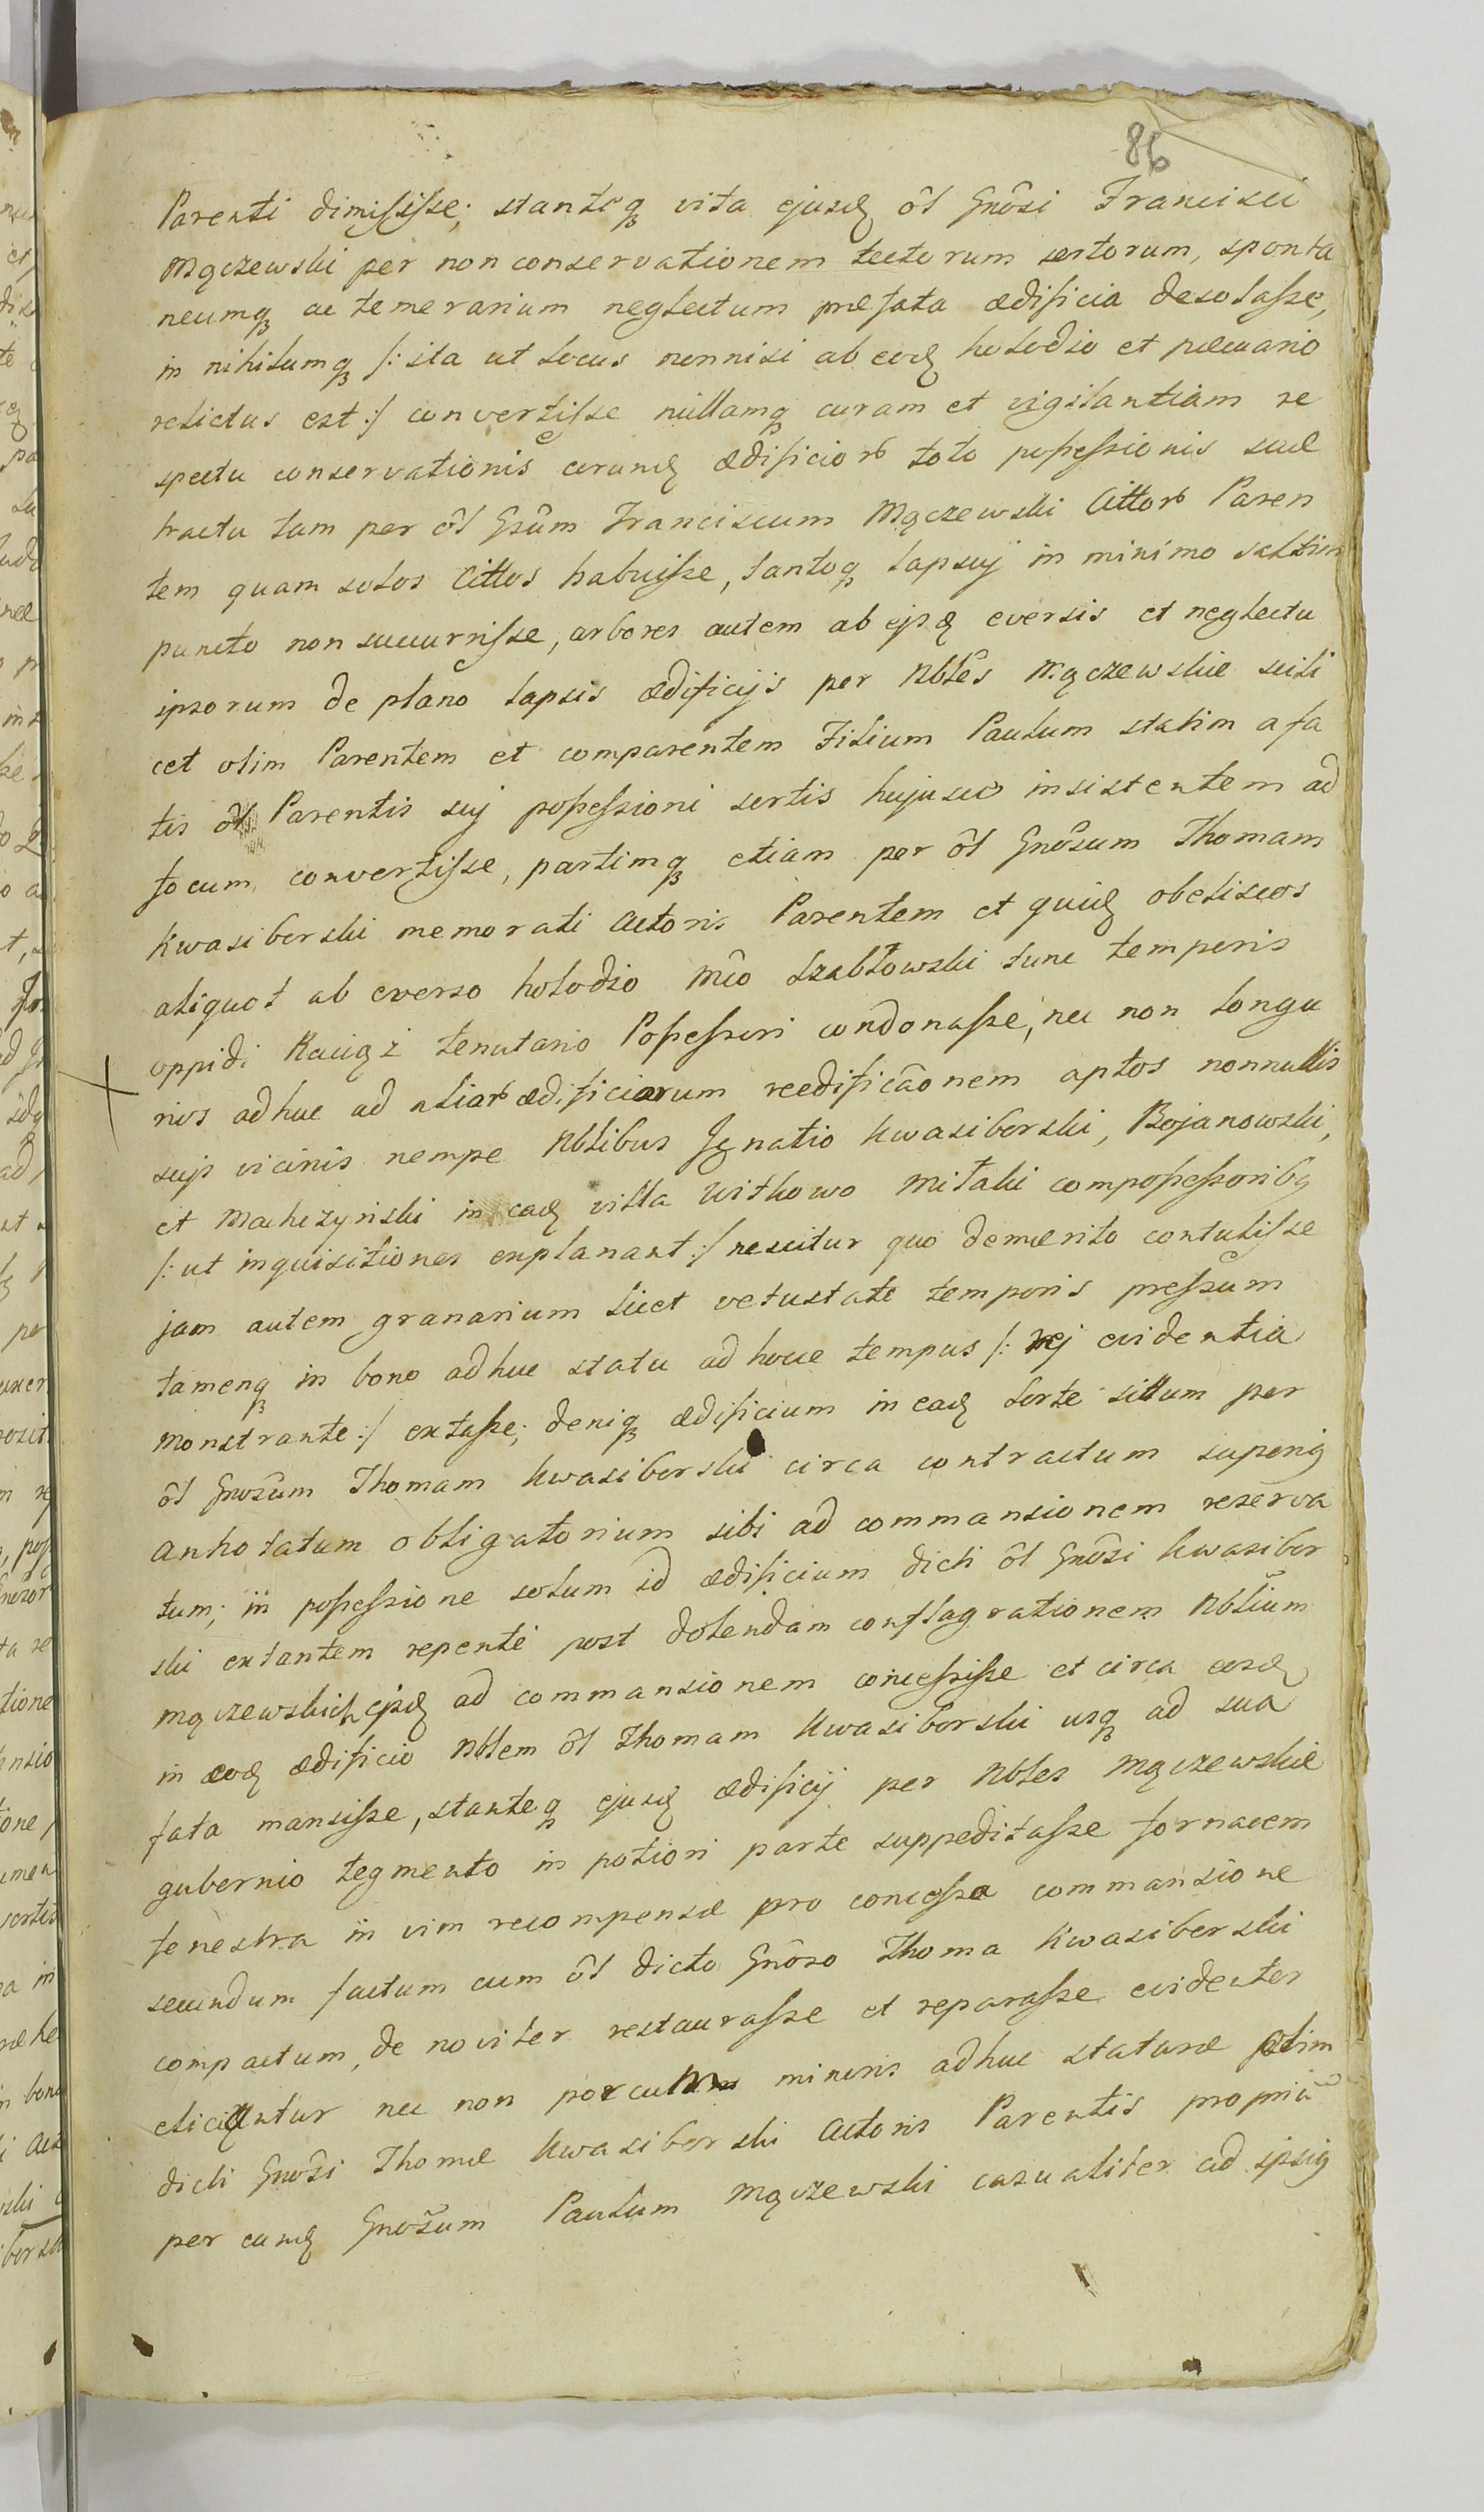 86
Parenti dimisisse; stanteq vita ejusd ôl Gnôsi Francisci
Mączewski per non conservationem tectorum sertorum, sponta
neumq ac temerarium neglectum præfata ædificia desolasse,
in nihilumq /: ita ut locus nonnisi ab eod holodio et pæcuario
relictus est :/ convertisse nullamq curam et vigilantiam re
spectu conservationis eorund ædificior toto possessionis suæ
tractu tam per ôl Gsûm Franciscum Mączewski Cittor Paren
tem quam solos Cittos habuisse, tantoq lapsuj in minimo saltim
puncto non succurrisse, arbores autem ab ejsd eversis et neglectu
ipsorum de plano lapsis ædificijs per Nbles Mączewskie scili
cet olim Parentem et comparentem Filium Paulum statim a fa
tis ôl Parentis suj possessioni sortis hujusce insistentem ad
focum convertisse, partimq etiam per ôl Gnôsum Thomam
Kwasiborski memorati Actoris Parentem et quid obeliscos
aliquot ab everso holodio Mco Szabłowski tunc temporis
oppidi Raciąż tenutario Possessori condonasse, nec non longu
rios adhuc ad aliar ædificiorum reedificâonem aptos nonnullis
sujs vicinis nempe Nblibus Ignatio Kwasiborski, Bojanowski,
et Machczyński in ead villa Witkowo mitalii compossessoribq
/: ut inquisitiones explanant :/ nescitur quo demerito contulisse
jam autem granarium licet vetustate temporis pressum
tamenq in bono adhuc statu ad hocce tempus /: rej evidentia
monstrante :/ extasse; deniq ædificium in ead sorte situm per
ôl Gnosûm Thomam Kwasiborski circa contractum superiq
anhotatum obligatorium sibi ad commansionem reserva
tum; in possessione solum id ædificium dicti ôl Gnôsi Kwasibor
ski extantem repente post dolendam conflagrationem Nblium
Mączewskich ejsd ad commansionem concessisse et circa eosd
in eod ædificio Nblem ôl Thomam Kwasiborski usq ad sua
fata mansisse, stanteq ejusd ædificij per Nbles Mączewskie
gubernio tegmento in potiori parte suppeditasse fornacem
fenestra in vim recompensæ pro concessa commansione
secundum factum cum ôl dicto Gnôso Thoma Kwasiborski
compactum, de noviter restaurasse et reparasse evidenter
eliciuntur nec non porcum minoris adhuc staturæ olim
dicti Gnôsi Thomæ Kwasiborski Actoris Parentis propriû
per eund Gnosum Paulum Mączewski casualiter ad ipsiq